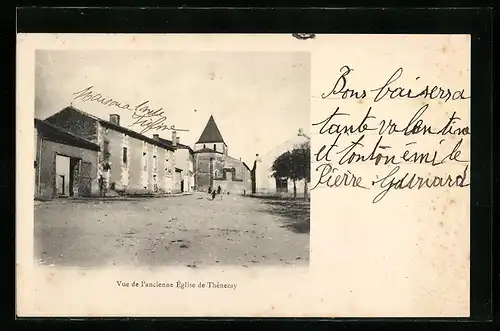 Maison tante
Bons baisers a
tante valentine
et tonton émile
Pierre
Vue de l'ancienne Église de Thénezay